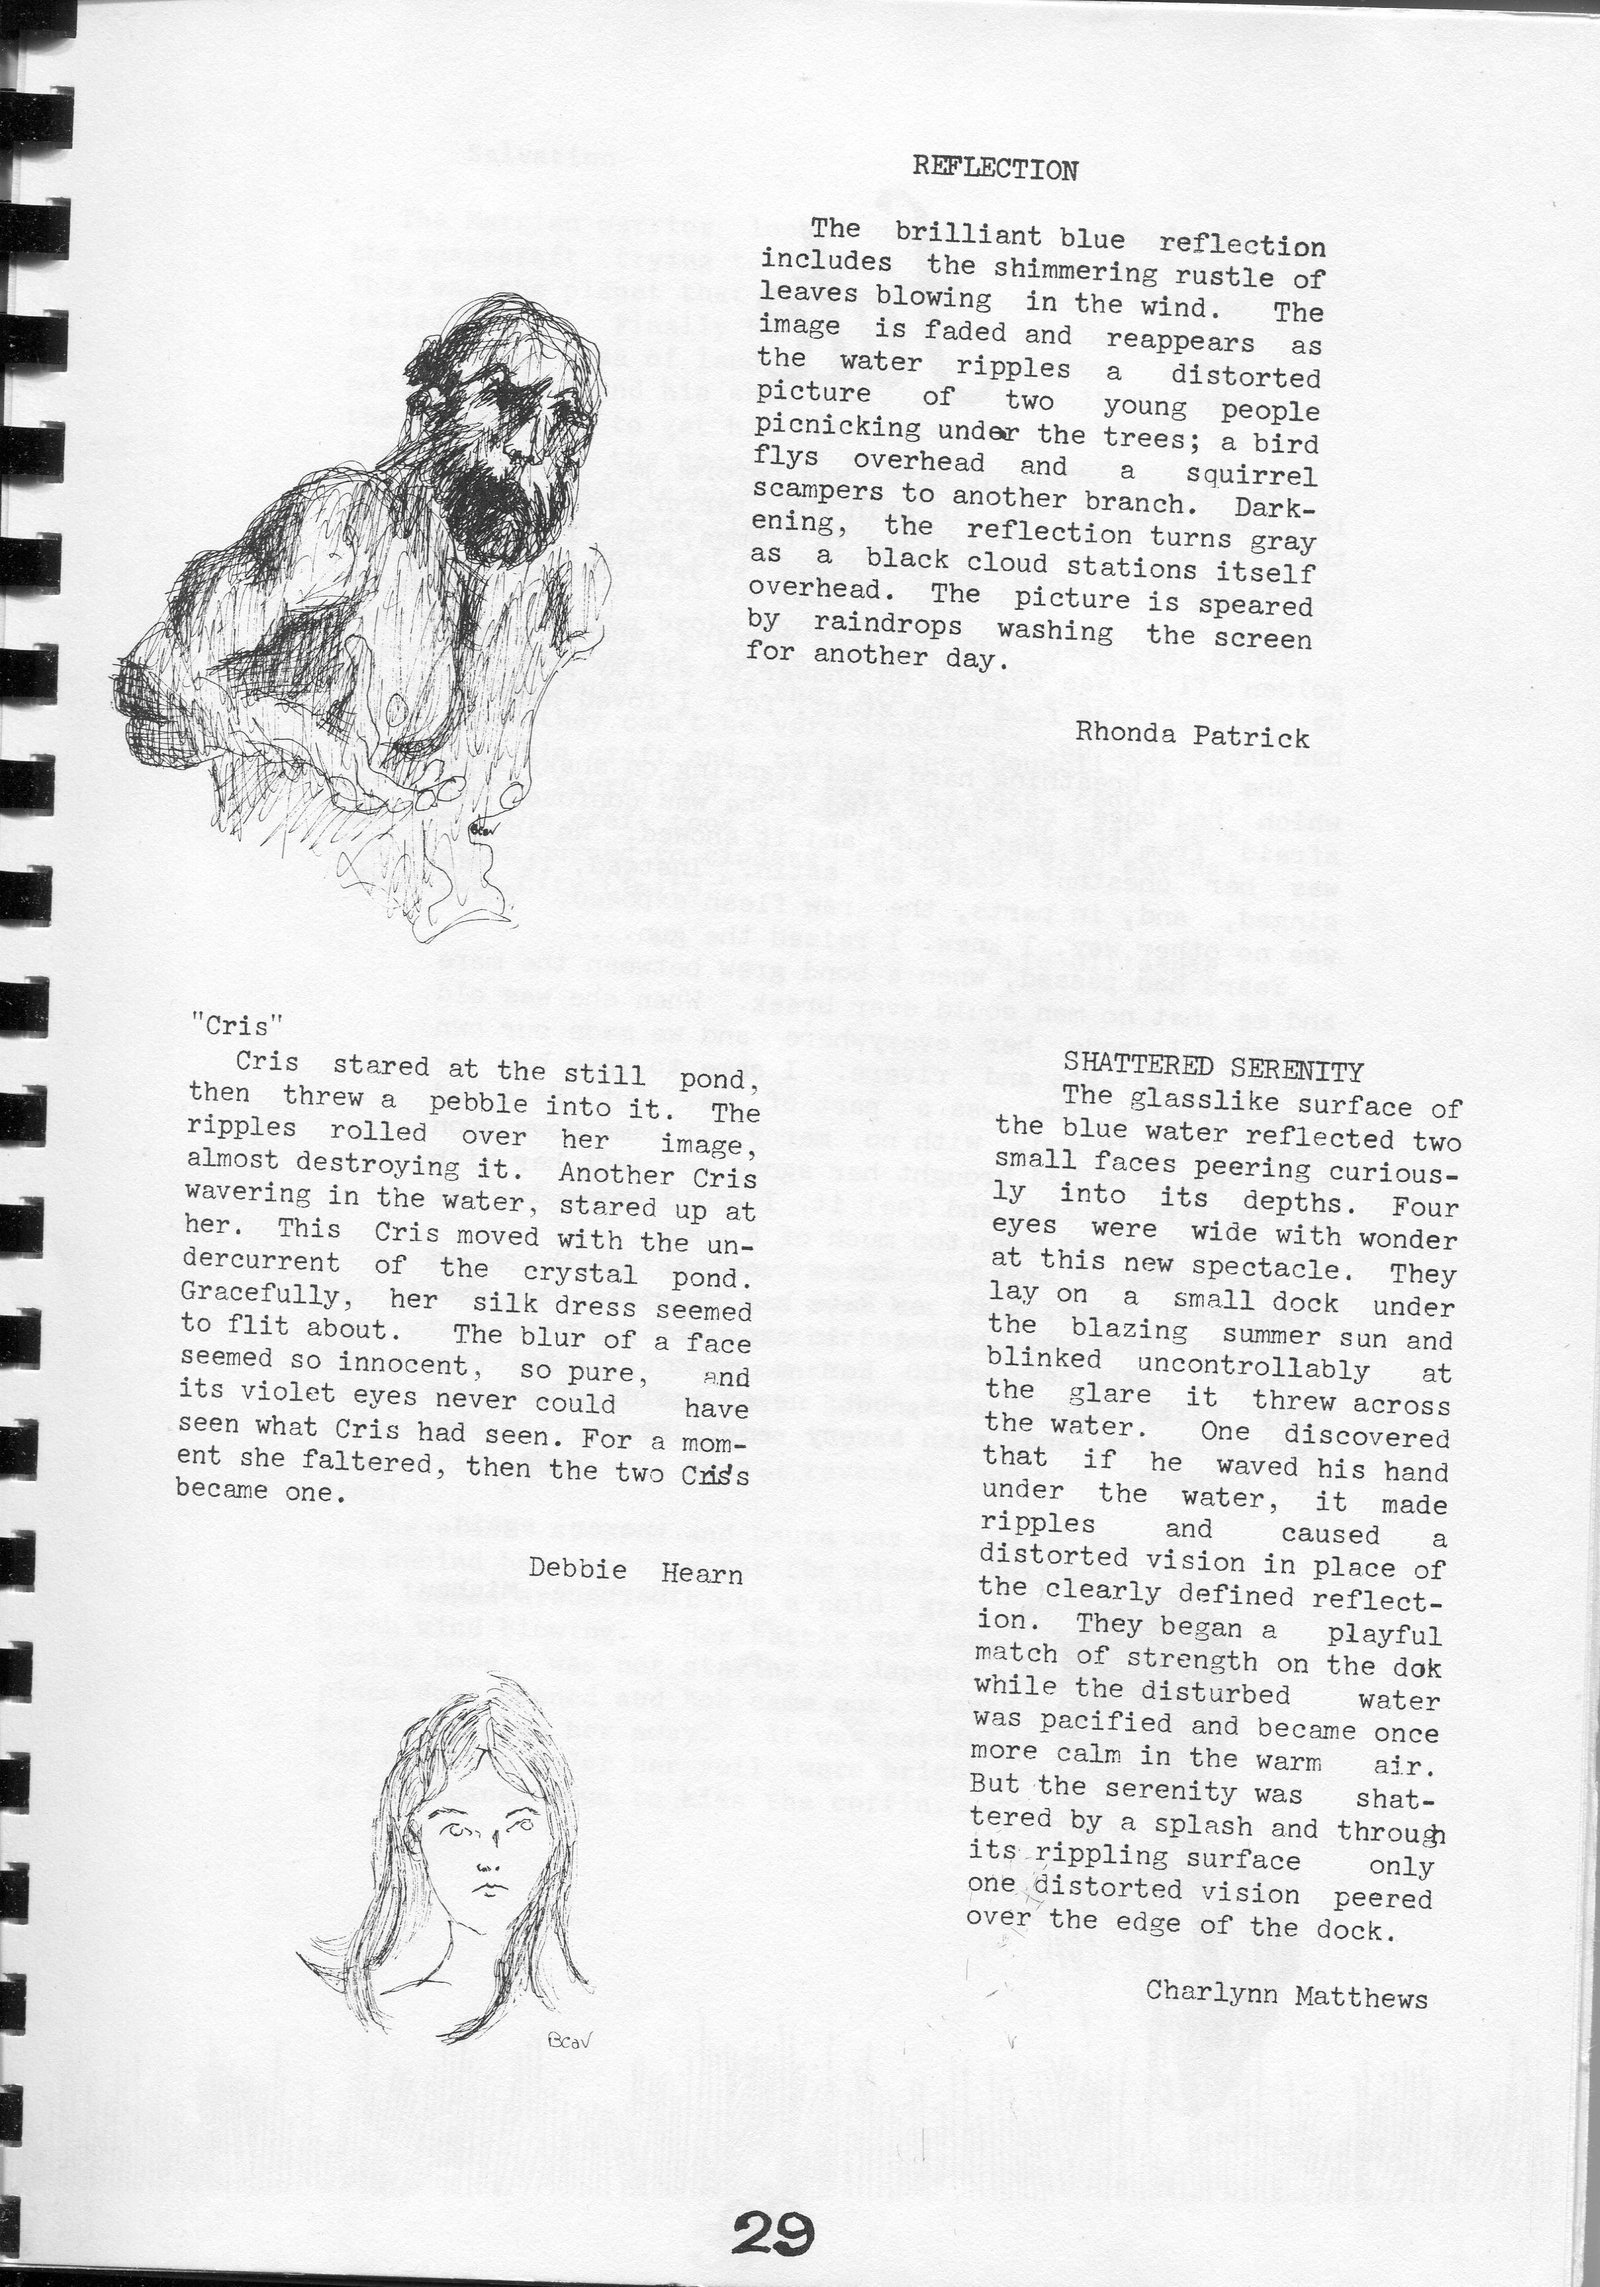 REFLECTION
The brilliant blue reflection
includes the shimmering rustle of
leaves blowing in the wind. The
image is faded and reappears as
the water ripples a distorted
picture of two young people
picnicking under the trees; a bird
flys overhead and a squirrel
scampers to another branch. Dark-
ening, the reflection turns gray
as a black cloud stations itself
overhead. The picture is speared
by raindrops washing the screen
for another day.
Rhonda Patrick
Bcav
"Cris"
Cris stared at the still pond,
then threw a pebble into it. The
ripples rolled over her image,
almost destroying it. Another Cris
wavering in the water, stared up at
her. This Cris moved with the un-
dercurrent of the crystal pond.
Gracefully, her silk dress seemed
to flit about. The blur of a face
seemed so innocent, so pure, and
its violet eyes never could have
seen what Cris had seen. For a mom-
ent she faltered, then the two Cris's
became one.
Debbie Hearn
Bcav
SHATTERED SERENITY
The glasslike surface of
the blue water reflected two
small faces peering curious-
ly into its depths. Four
eyes were wide with wonder
at this new spectacle. They
lay on a small dock under
the blazing summer sun and
blinked uncontrollably at
the glare it threw across
the water. One discovered
that if he waved his hand
under the water, it made
ripples and caused a
distorted vision in place of
the clearly defined reflect-
ion. They began a playful
match of strength on the dok
while the disturbed water
was pacified and became once
more calm in the warm air.
But the serenity was shat-
tered by a splash and through
its rippling surface only
one distorted vision peered
over the edge of the dock.
Charlynn Matthews
29